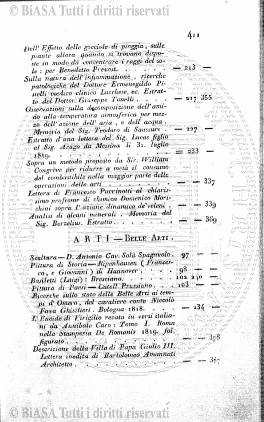 © BiASA Tutti i diritti riservati
411
Dell' Effetto delle gocciole di pioggia, sulle
piante allora quando si trovano dispo-
ste in modo da concentrare i raggi del so-
le: per Benedetto Prevost. — 213 —
Sulla natura dell'infiammazione, ricerche
patologiche del Dottore Ermenegildo Pi-
stelli medico clinico Lucchese, ec. Estrat-
to del Dottor Giuseppe Tonelli. — 217 355
Osservazioni sulla decomposizione dell'ami-
do alla temperatura atmosferica per mez-
zo dell'azione dell'aria, e dell'acqua
Memoria del Sig. Teodoro di Saussure . — 227 —
Estratto d'una lettera del Sig. Lucas figlio
al Sig. Arago da Messina li 30. luglio
1819. — 233 —
Sopra un metodo proposto da Sir William
Congreve per ridurre a metà il consumo
del combustibile nella maggior parte delle
operazioni delle arti — — 337
Lettera di Francesco Puccinotti al chiaris-
simo professor di chimica Domenico Mori-
chini sopra l'azione dinamica de'veleni — 339
Analisi di alcuni minerali . Memoria del
Sig. Berzelius. Estratto . — — 369
ARTI — BELLE ARTI.
Scultura — D. Antonio Cav. Solà Spagnuolo. 97 — —
Pittura di Storia — Riepenhausen (France-
co, e Giovanni) di Hannover . 98 — —
Basiletti (Luigi) Bresciano. 102 240 —
Pittura di Paesi — Catell Prussiano . 103 — —
Ricerche sullo stato delle Belle Arti ai tem-
pi d'Omero, del cavaliere conte Niccolò
Fava Ghisilieri. Bologna 1818. — 234 —
L'Eneide di Virgilio recata in versi italia-
ni da Annibale Caro: Tomo I. Roma
nella Stamperia De Romanis 1819. fol.
figurato — — 378
Descrizione della Villa di Papa Giulio III.
Lettera inedita di Bartolomeo Amannati
Architetto . — — 387
© BiASA Tutti i diritti riservati